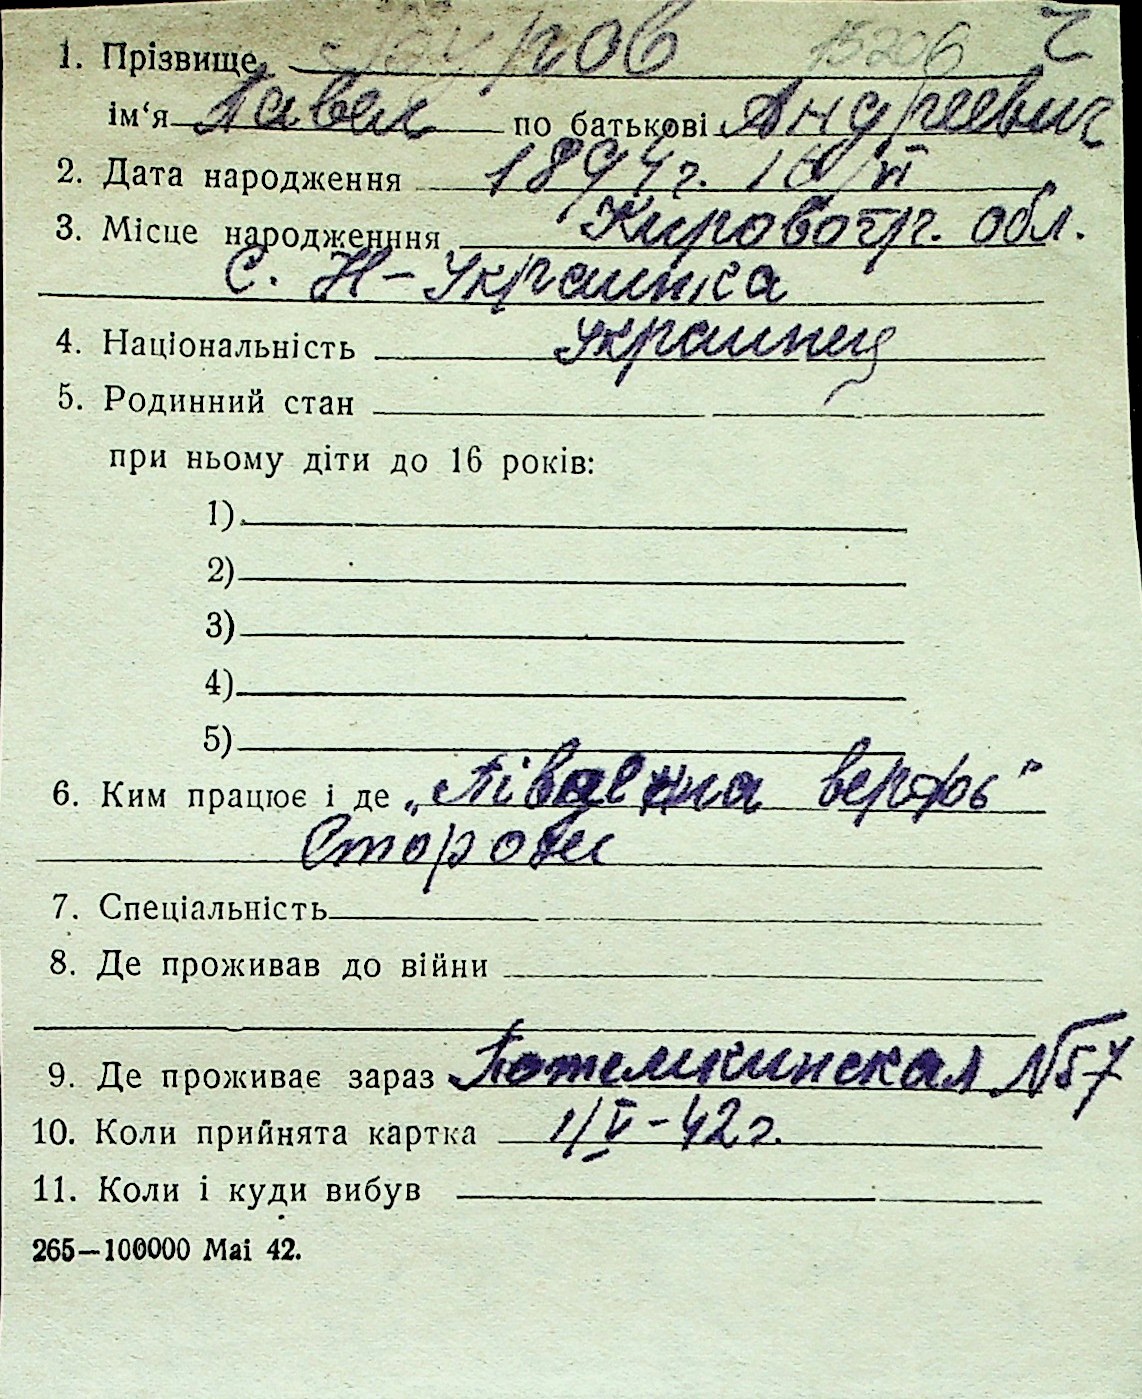 1. Прізвище 15206
ім‘я Павел по батькові Андреевич
2. Дата народження 1894г. 16/VI
3. Місце народженння Кировогр. обл.
С. Н-Украинка
4. Національність украинец
5. Родинний стан
при ньому діти до 16 років:
1)
2)
3)
4)
5)
6. Ким працює і де „Південна верфь"
Сторож
7. Спеціальність
8. Де проживав до війни
9. Де проживає зараз Потемкинская №57
10. Коли прийнята картка 1/V-42г.
11. Коли і куди вибув
265—100000 Маі 42.